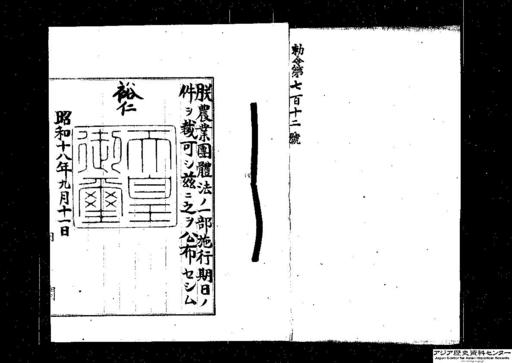 勅令第七百十二號
朕農業團體法ノ一部施行期日ノ
件ヲ裁可シ茲ニ之ヲ公布セシム
裕仁
天皇御璽
昭和十八年九月十一日
アジア歴史資料センター
Japan Center for Asian Historical Records